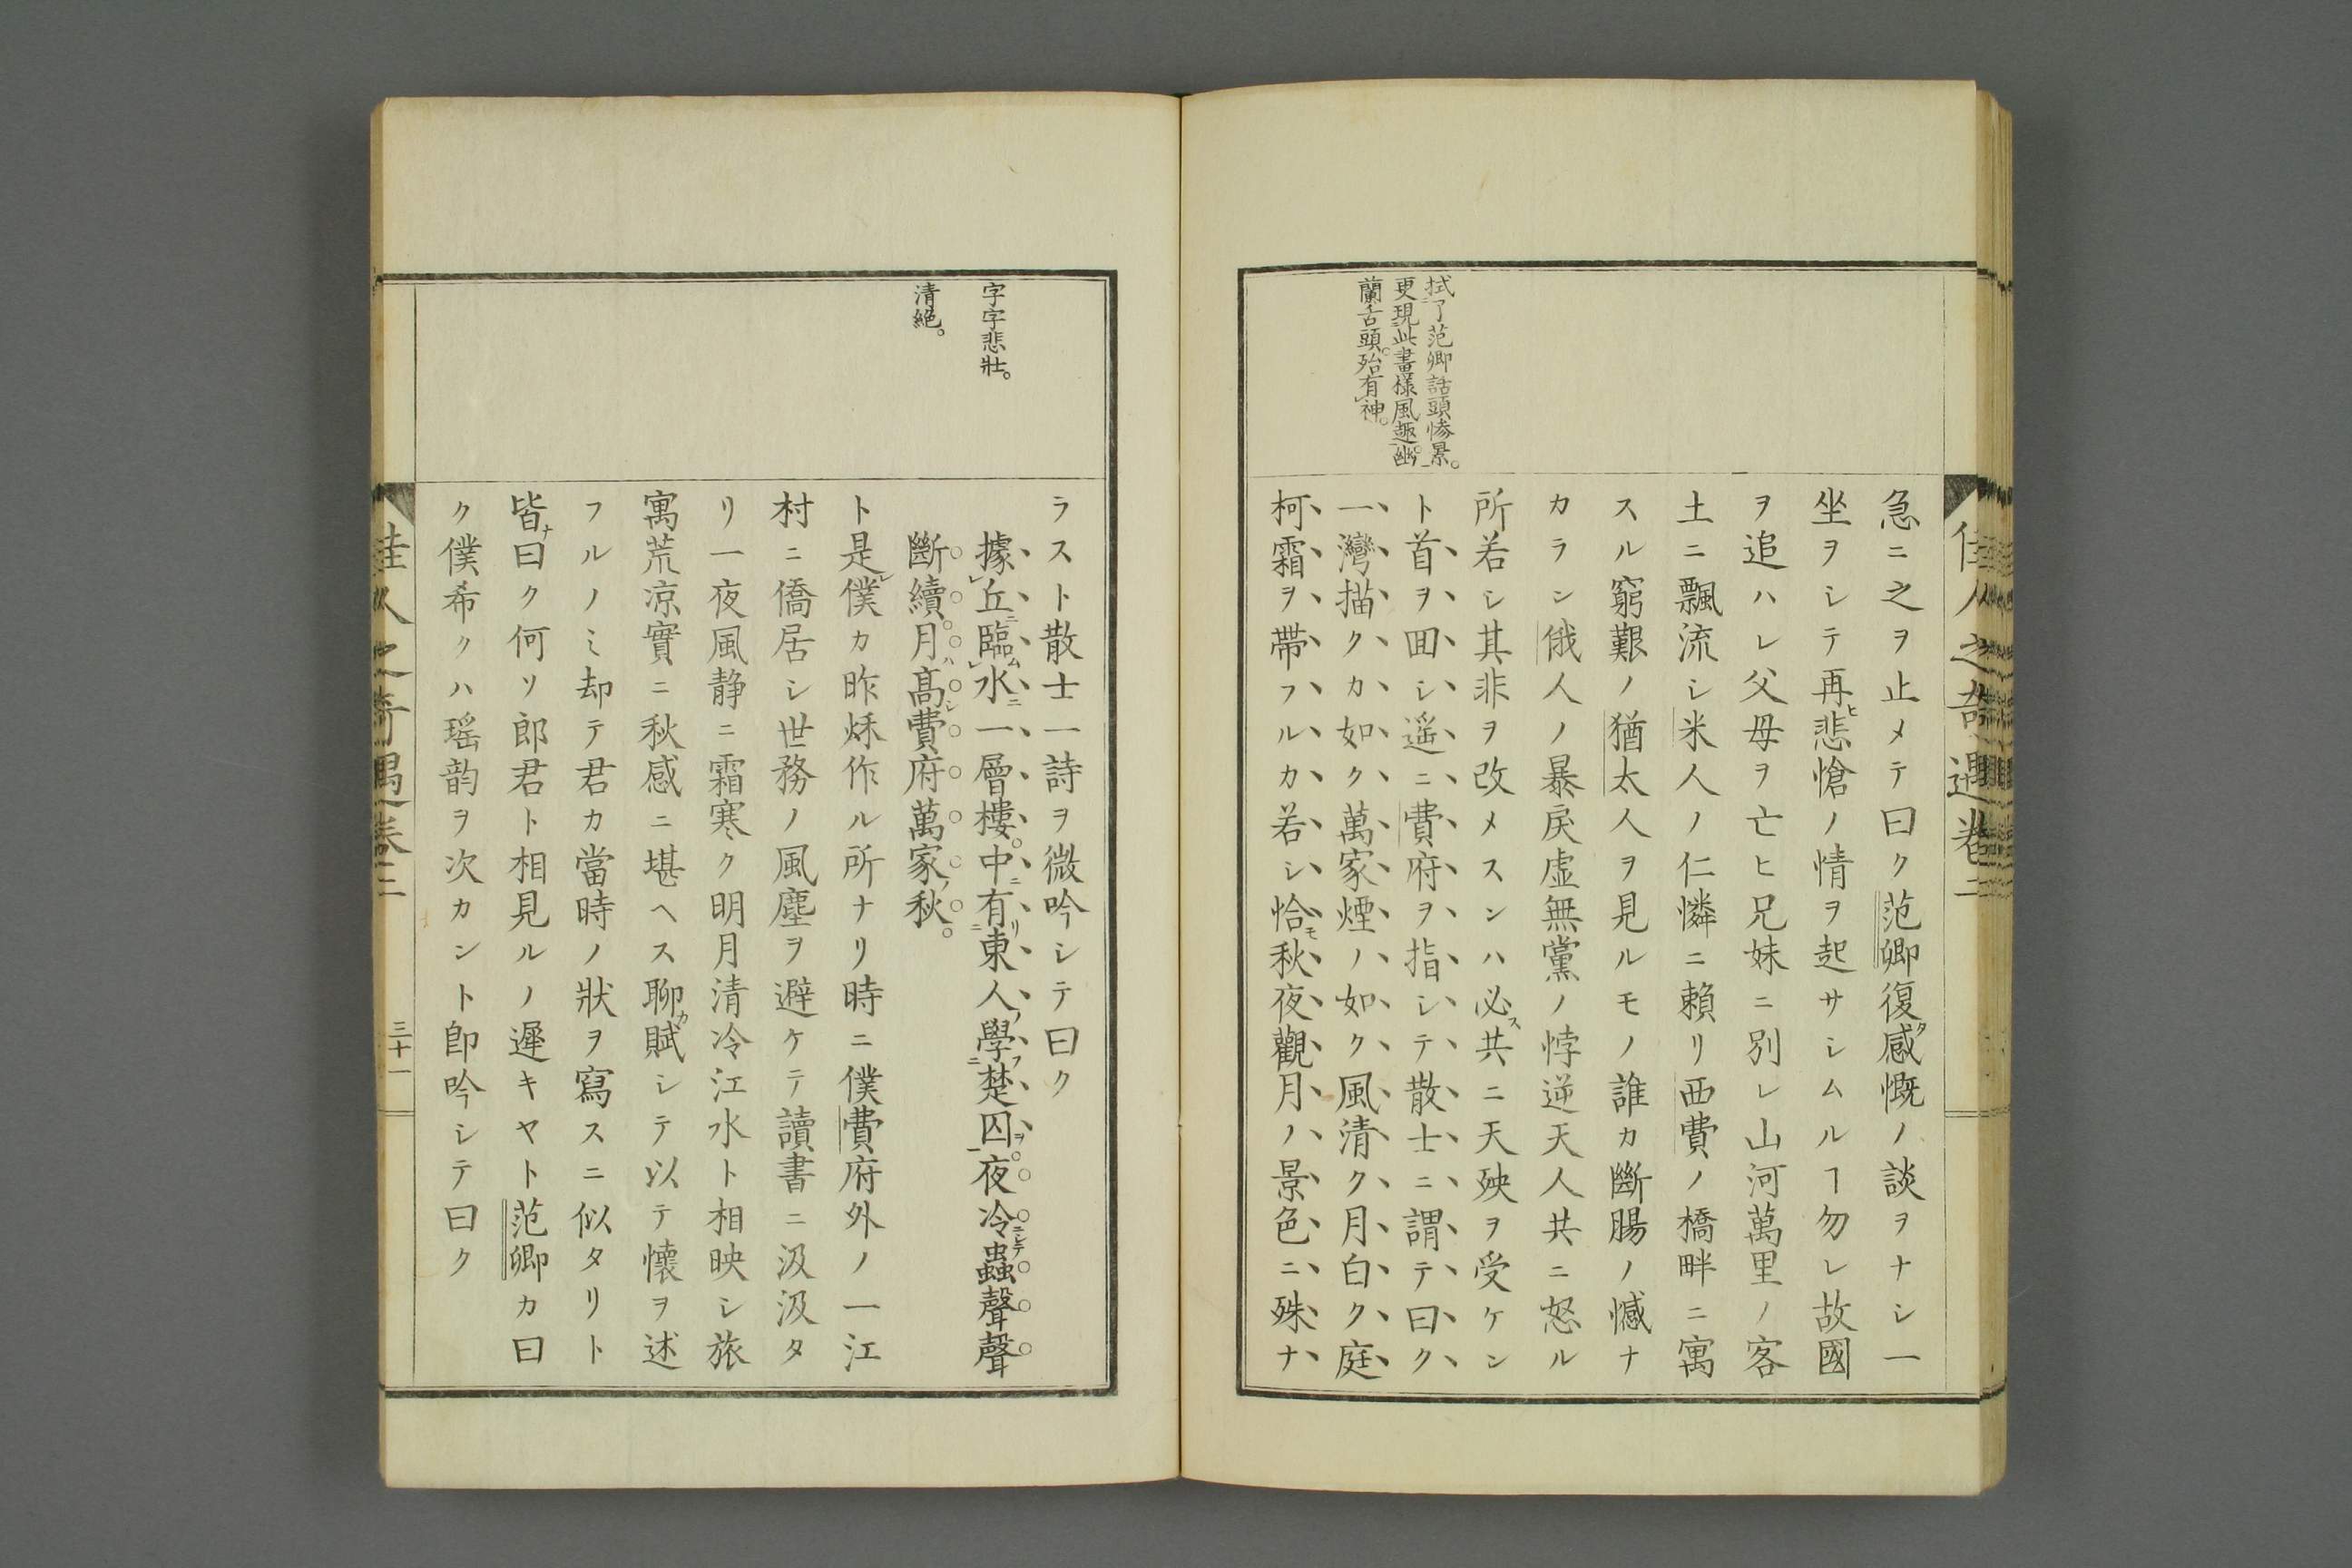 佳人之奇遇卷二
拭了范卿話頭慘景。
更現此畫樣風趣。幽
蘭舌頭。殆有神。
急ニ之ヲ止メテ曰ク范卿復タ感慨ノ談ヲナシ一
坐ヲシテ再ヒ悲愴ノ情ヲ起サシムルヿ勿レ故國
ヲ追ハレ父母ヲ亡ヒ兄妹ニ別レ山河萬里ノ客
土ニ飄流シ米人ノ仁憐ニ賴リ西費ノ橋畔ニ寓
スル窮艱ノ猶太人ヲ見ルモノ誰カ斷腸ノ憾ナ
カラン俄人ノ暴戾虛無黨ノ悖逆天人共ニ怒ル
所若シ其非ヲ改メスンハ必ス共ニ天殃ヲ受ケン
ト首ヲ囬シ遥ニ費府ヲ指シテ散士ニ謂テ曰ク
一灣描クカ如ク萬家煙ノ如ク風清ク月白ク庭
柯霜ヲ帶フルカ若シ恰モ秋夜觀月ノ景色ニ殊ナ
字字悲壯。
清絕。
ラスト散士一詩ヲ微吟シテ曰ク
據丘ニ臨ム水ニ一層樓。中ニ有リ東人ノ學フ楚囚ヲ。夜冷ニシテ蟲聲聲
斷續。月ハ高シ費府萬家ノ秋。
ト是レ僕カ昨秌作ル所ナリ時ニ僕費府外ノ一江
村ニ僑居シ世務ノ風塵ヲ避ケテ讀書ニ汲汲タ
リ一夜風静ニ霜寒ク明月清冷江水ト相映シ旅
寓荒凉實ニ秋感ニ堪ヘス聊カ賦シテ以テ懷ヲ述
フルノミ却テ君カ當時ノ狀ヲ寫スニ似タリト
皆ナ曰ク何ソ郎君ト相見ルノ遲キヤト范卿カ曰
ク僕希クハ瑶韵ヲ次カント卽吟シテ曰ク
佳人之奇遇卷二
三十一